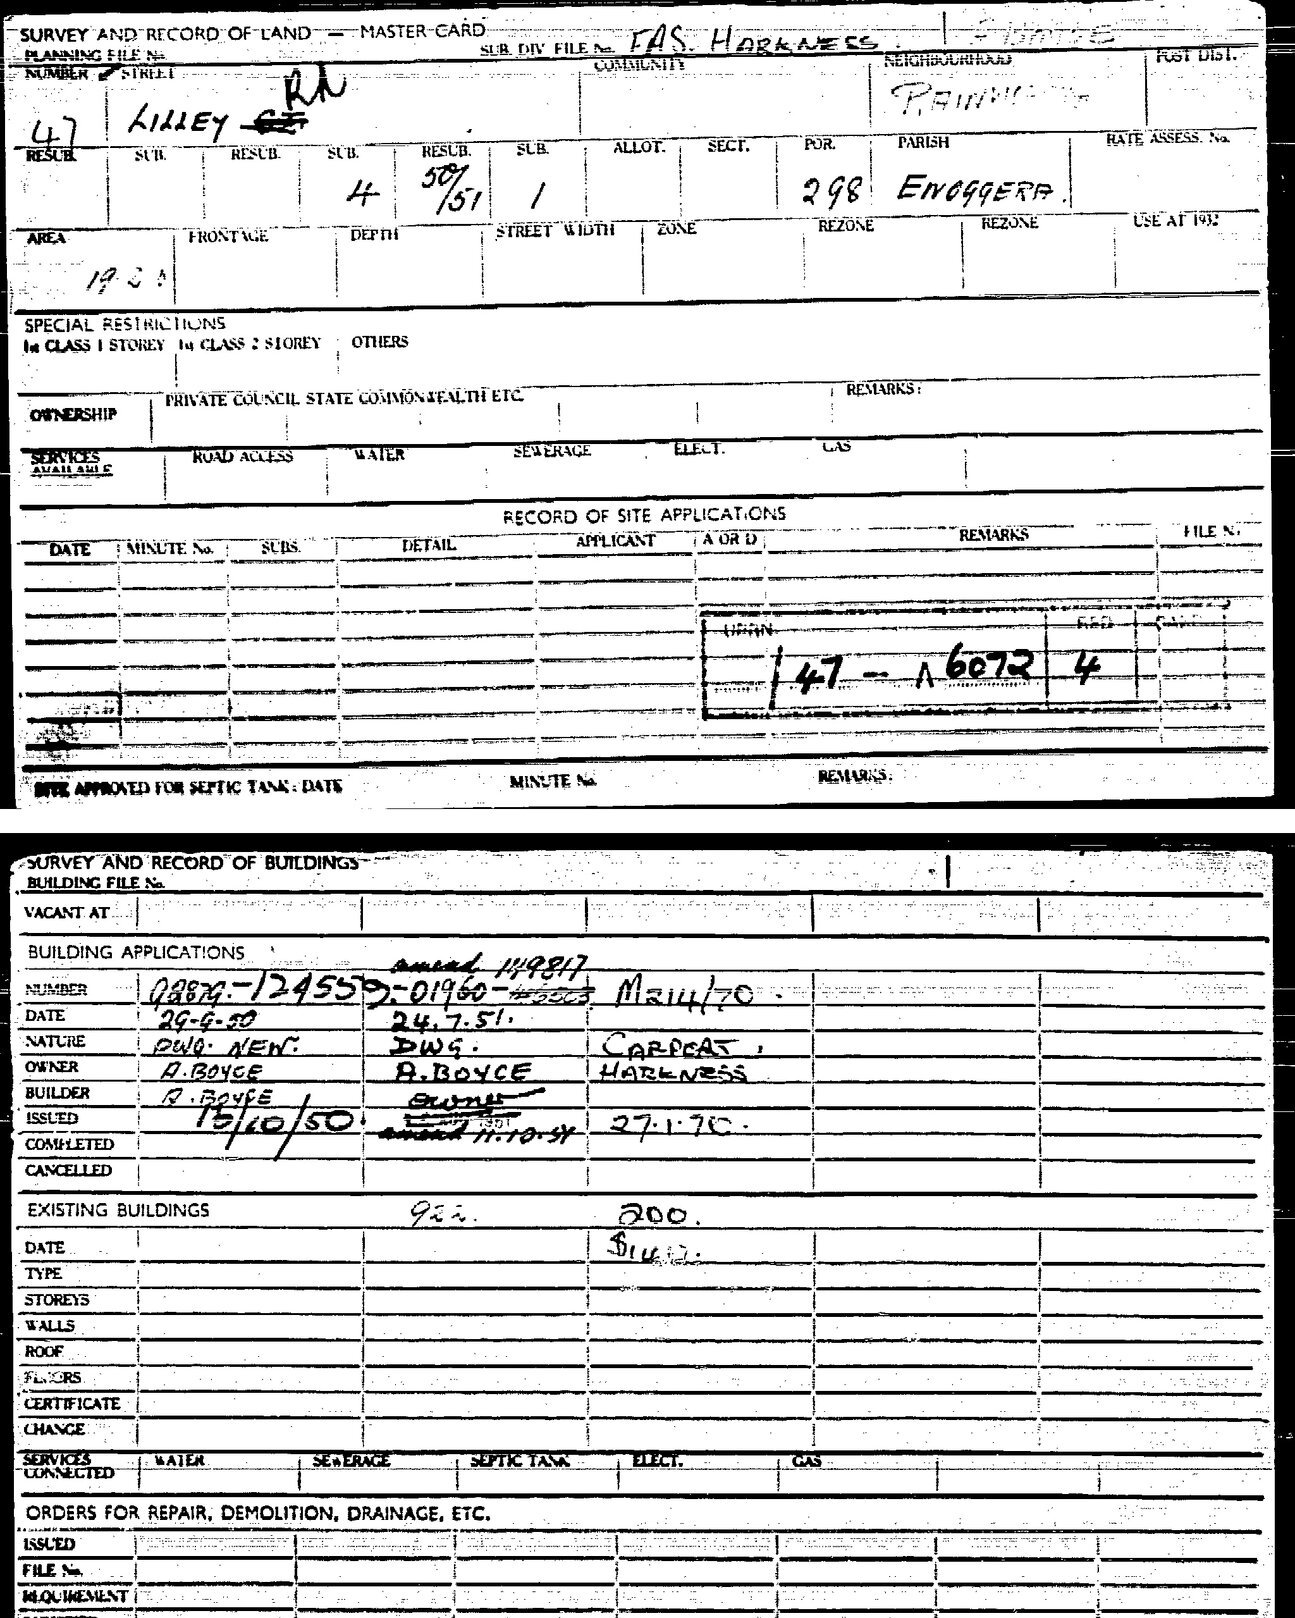 SURVEY AND RECORD OF LAND — MASTER CARD
PLANNING FILE No. SUB. DIV FILE No. FAS. HARKNESS.
NUMBER STREET COMMUNITY NEIGHBOURHOOD POST DIST.
47 LILLEY RD
RESUB. SUB. RESUB. SUB. RESUB. SUB. ALLOT. SECT. POR. PARISH RATE ASSESS. No.
4 50/51 1 298 ENOGGERA.
AREA FRONTAGE DEPTH STREET WIDTH ZONE REZONE REZONE USE AT 1932
SPECIAL RESTRICTIONS
1st CLASS 1 STOREY 1st CLASS 2 STOREY OTHERS
OWNERSHIP PRIVATE COUNCIL STATE COMMONWEALTH ETC. REMARKS:
SERVICES AVAILABLE ROAD ACCESS WATER SEWERAGE ELECT. GAS
RECORD OF SITE APPLICATIONS
DATE MINUTE No. SUBS. DETAIL APPLICANT A OR D REMARKS FILE No.
47 - 6072 4
SITE APPROVED FOR SEPTIC TANK: DATE MINUTE No. REMARKS:
SURVEY AND RECORD OF BUILDINGS
BUILDING FILE No.
VACANT AT
BUILDING APPLICATIONS
amend 149817
NUMBER -01960- M214/70.
DATE 29-9-50 24.7.51.
NATURE DWG. NEW. DWG. CARPORT.
OWNER A.BOYCE A.BOYCE HARKNESS
BUILDER A.BOYCE owner
ISSUED 15/10/50. 27.1.70.
COMPLETED
CANCELLED
EXISTING BUILDINGS 922. 200.
DATE
TYPE
STOREYS
WALLS
ROOF
FLOORS
CERTIFICATE
CHANGE
SERVICES CONNECTED WATER SEWERAGE SEPTIC TANK ELECT. GAS
ORDERS FOR REPAIR, DEMOLITION, DRAINAGE, ETC.
ISSUED
FILE No.
REQUIREMENT